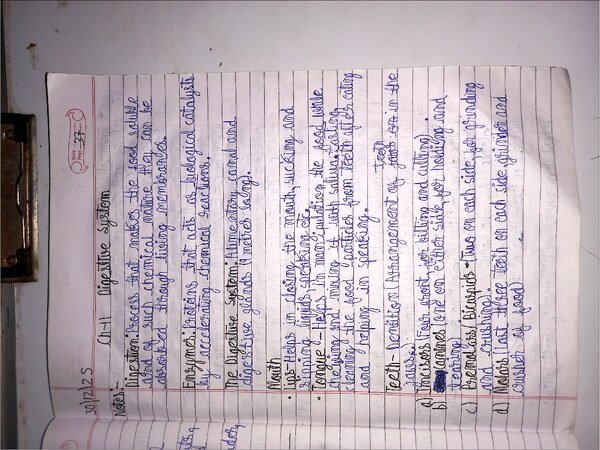 37
30/12/25
Ch-11 Digestive System
Notes:-
Digestion: Process that makes the food soluble
and of such chemical nature they can be
absorbed through living membranes.
Enzymes: Proteins that acts as biological catalysts
by accelerating chemical reactions.
The Digestive System: Alimentary canal and
digestive glands (4 meters long).
Mouth
• Lips: Helps in closing the mouth, sucking and
sipping liquids, speaking etc.
• Tongue:- Helps in manipulation the food while
chewing and mixing it with saliva, tasting
cleaning the food particles from teeth after eating
and helping in speaking.
Teeth
Teeth- Dentition (Arrangement of in the
jaws.
a) Incisors (Four front, for biting and cutting)
b) canines (one on either side, for holding and
tearing)
c) Premolars/Bicuspids - (Two on each side, for grinding
and crushing).
d) Molars (Last three teeth on each side, grinder and
crusher of food)